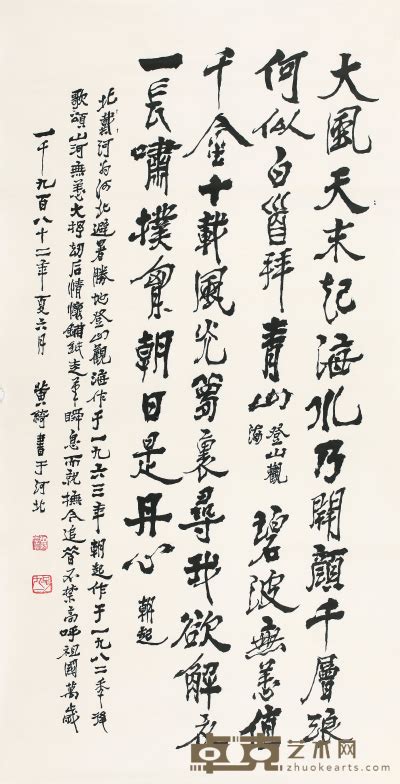 大風天末起海水乃開顏千層浪
何似白首拜青山 登山觀海 碧波無恙值
千金十載風光夢裏尋我欲解衣
一長嘯撲窗朝日是丹心 朝起
北戴河为河北避暑勝地登山觀海作于一九六三年朝起作于一九八二年
歌頌山河無恙大抒劫后情懷鋪紙走筆瞬息而就撫今追昔不禁高呼祖國萬歲
一千九百八十二年夏六月 黄綺書于河北
卓克艺术网
zhuokearts.com